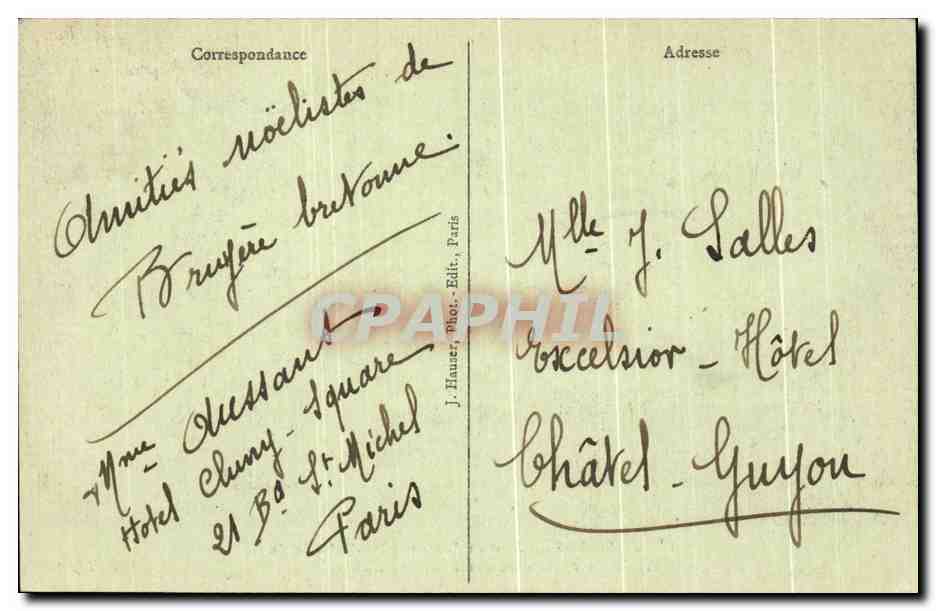 Correspondance
Amitiés noëlistes de
Bruyère bretonne.
Mme Aussant
Hotel Cluny-Square
21 Bd St Michel
Paris
J. Hauser, Phot.-Edit., Paris
CPAPHIL
Adresse
Mlle J. Salles
Excelsior-Hôtel
Châtel-Guyon